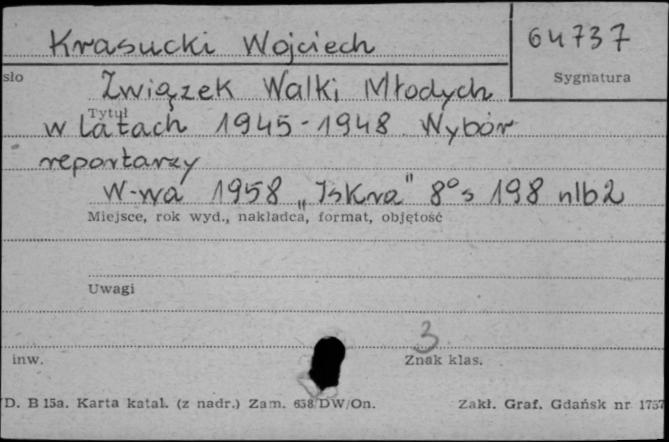 Krasucki Wojciech
64737
sło
Sygnatura
Związek Walki Młodych
Tytuł
w latach 1945-1948. Wybór
reportarzy
W-wa 1958 „Iskra" 8° s 198 nlb 2
Miejsce, rok wyd., nakładca, format, objętość
Uwagi
3
inw.
Znak klas.
D. B 15a. Karta katal. (z nadr.) Zam. 658/DW/On.
Zakł. Graf. Gdańsk nr 1757